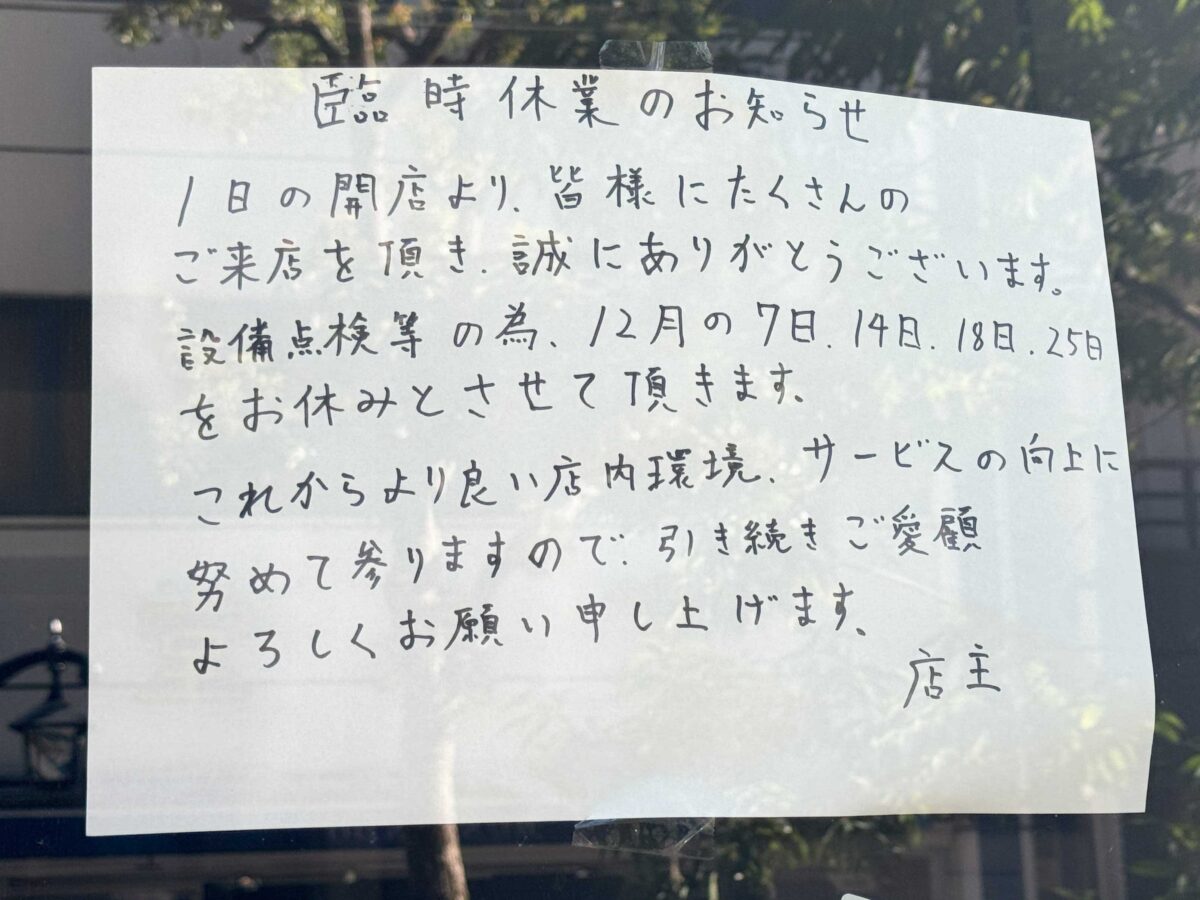 臨時休業のお知らせ
1日の開店より、皆様にたくさんの
ご来店を頂き、誠にありがとうございます。
設備点検等の為、12月の7日、14日、18日、25日
をお休みとさせて頂きます。
これからより良い店内環境、サービスの向上に
努めて参りますので、引き続きご愛顧
よろしくお願い申し上げます。
店主